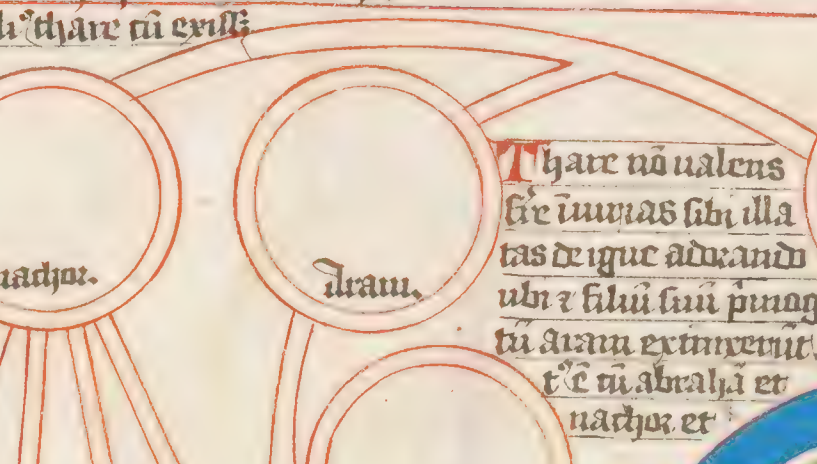 thare cū exiſſꝫ
nachor.
Aram.
Thare nō ualens
ſir̄e īiurias ſibi illa
tas de igne adorando
ubi ⁊ filiū ſuū p̄mog
tū aram extinxerūt
cū abrahā et
nachor. et